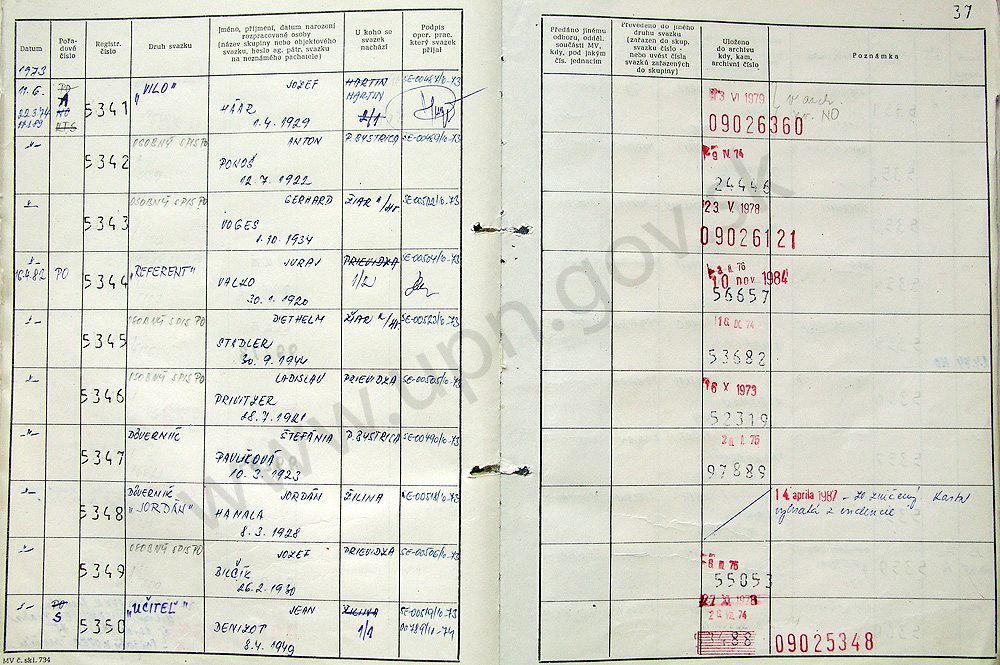 Datum
Pořa-
dové
číslo
Registr.
číslo
Druh svazku
Jméno, příjmení, datum narození
rozpracované osoby
(název skupiny nebo objektového
svazku, heslo ag. pátr. svazku
na neznámého pachatele)
U koho se
svazek
nachází
Podpis
oper. prac.
který svazek
přijal
1973
11.6.
22.3.74
PO
A
5341
„VILO"
JOZEF
HÁÁR
1.4. 1929
MARTIN
MARTIN
2/1
5342
OSOBNÝ SPIS PO
ANTON
12.7. 1922
P. BYSTRICA
SE-00489/0-73
5343
OSOBNÝ SPIS PO
GERHARD
VOGES
1.10. 1934
ŽIAR n/Hr.
SE-00502/0-73
16.4.82
PO
5344
„REFERENT"
JURAJ
VALKO
30.1. 1920
PRIEVIDZA
1/2
SE-00504/0-73
5345
OSOBNÝ SPIS PO
DIETHELM
STADLER
30.9. 1942
ŽIAR n/Hr.
SE-00523/0-73
5346
OSOBNÝ SPIS PO
LADISLAV
PRIVITZER
28.7. 1921
PRIEVIDZA
SE-00505/0-73
5347
DÔVERNÍK
ŠTEFÁNIA
PAVLÍKOVÁ
10.3. 1923
P. BYSTRICA
SE-00490/0-73
5348
DÔVERNÍK
„JORDÁN"
JORDÁN
HAMALA
8.3. 1928
ŽILINA
SE-00518/0-73
5349
OSOBNÝ SPIS PO
JOZEF
BILČÍK
26.2. 1930
PRIEVIDZA
SE-00506/0-73
PO
S
5350
„UČITEĽ"
JEAN
DENIZOT
8.4. 1949
ŽILINA
1/1
SE-00519/0-73
00789/10-74
MV č. skl. 734
37
Předáno jinému
odboru, odděl.
součásti MV,
kdy, pod jakým
čís. jednacím
Převedeno do jiného
druhu svazku
(zařazen do skup.
svazku číslo -
nebo uvést čísla
svazků zařazených
do skupiny)
Uloženo
do archívu
kdy, kam,
archivní číslo
Poznámka
VI 1979
v arch.
NO
09026360
IV. 74
24446
23. V. 1978
09026121
II. 76
10 nov 1984
56657
IX. 74
53682
16 X 1973
52319
II. 75
97889
14. aprila 1987 -
evidencie
III. 75
55053
27 XI 1978
VII. 74
3488
09025348
www.upn.gov.sk